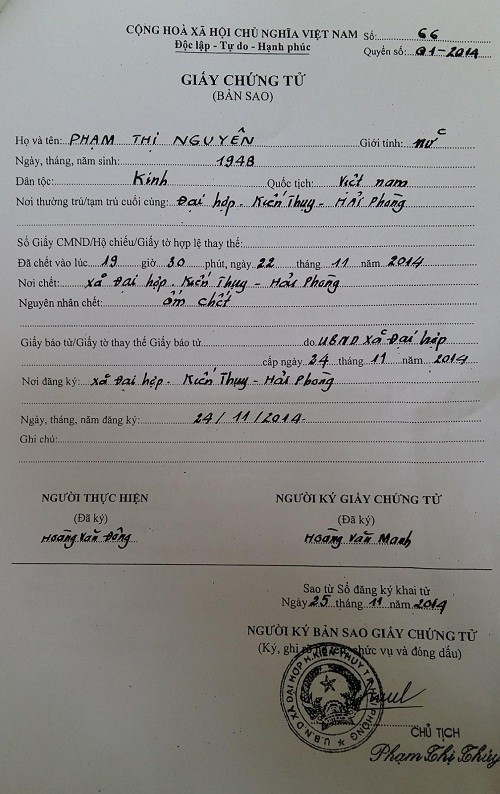 CỘNG HOÀ XÃ HỘI CHỦ NGHĨA VIỆT NAM Số: 66
Độc lập - Tự do - Hạnh phúc Quyển số: 01-2014
GIẤY CHỨNG TỬ
(BẢN SAO)
Họ và tên: PHẠM THỊ NGUYÊN Giới tính: nữ
Ngày, tháng, năm sinh: 1948
Dân tộc: Kinh Quốc tịch: Việt nam
Nơi thường trú/tạm trú cuối cùng: Đại hợp - Kiến Thụy - Hải Phòng
Số Giấy CMND/Hộ chiếu/Giấy tờ hợp lệ thay thế:
Đã chết vào lúc 19 giờ 30 phút, ngày 22 tháng 11 năm 2014
Nơi chết: xã Đại hợp - Kiến Thụy - Hải Phòng
Nguyên nhân chết: ốm chết
Giấy báo tử/Giấy tờ thay thế Giấy báo tử do UBND xã Đại hợp
cấp ngày 24 tháng 11 năm 2014
Nơi đăng ký: xã Đại hợp - Kiến Thụy - Hải Phòng
Ngày, tháng, năm đăng ký: 24/11/2014
Ghi chú:
NGƯỜI THỰC HIỆN NGƯỜI KÝ GIẤY CHỨNG TỬ
(Đã ký) (Đã ký)
Hoàng Văn Đông Hoàng Văn Manh
Sao từ Sổ đăng ký khai tử
Ngày 25 tháng 11 năm 2014
NGƯỜI KÝ BẢN SAO GIẤY CHỨNG TỬ
(Ký, ghi rõ họ tên, chức vụ và đóng dấu)
U.B.N.D XÃ ĐẠI HỢP H.KIẾN THỤY T.P HẢI PHÒNG
CHỦ TỊCH
Phạm Thị Thúy